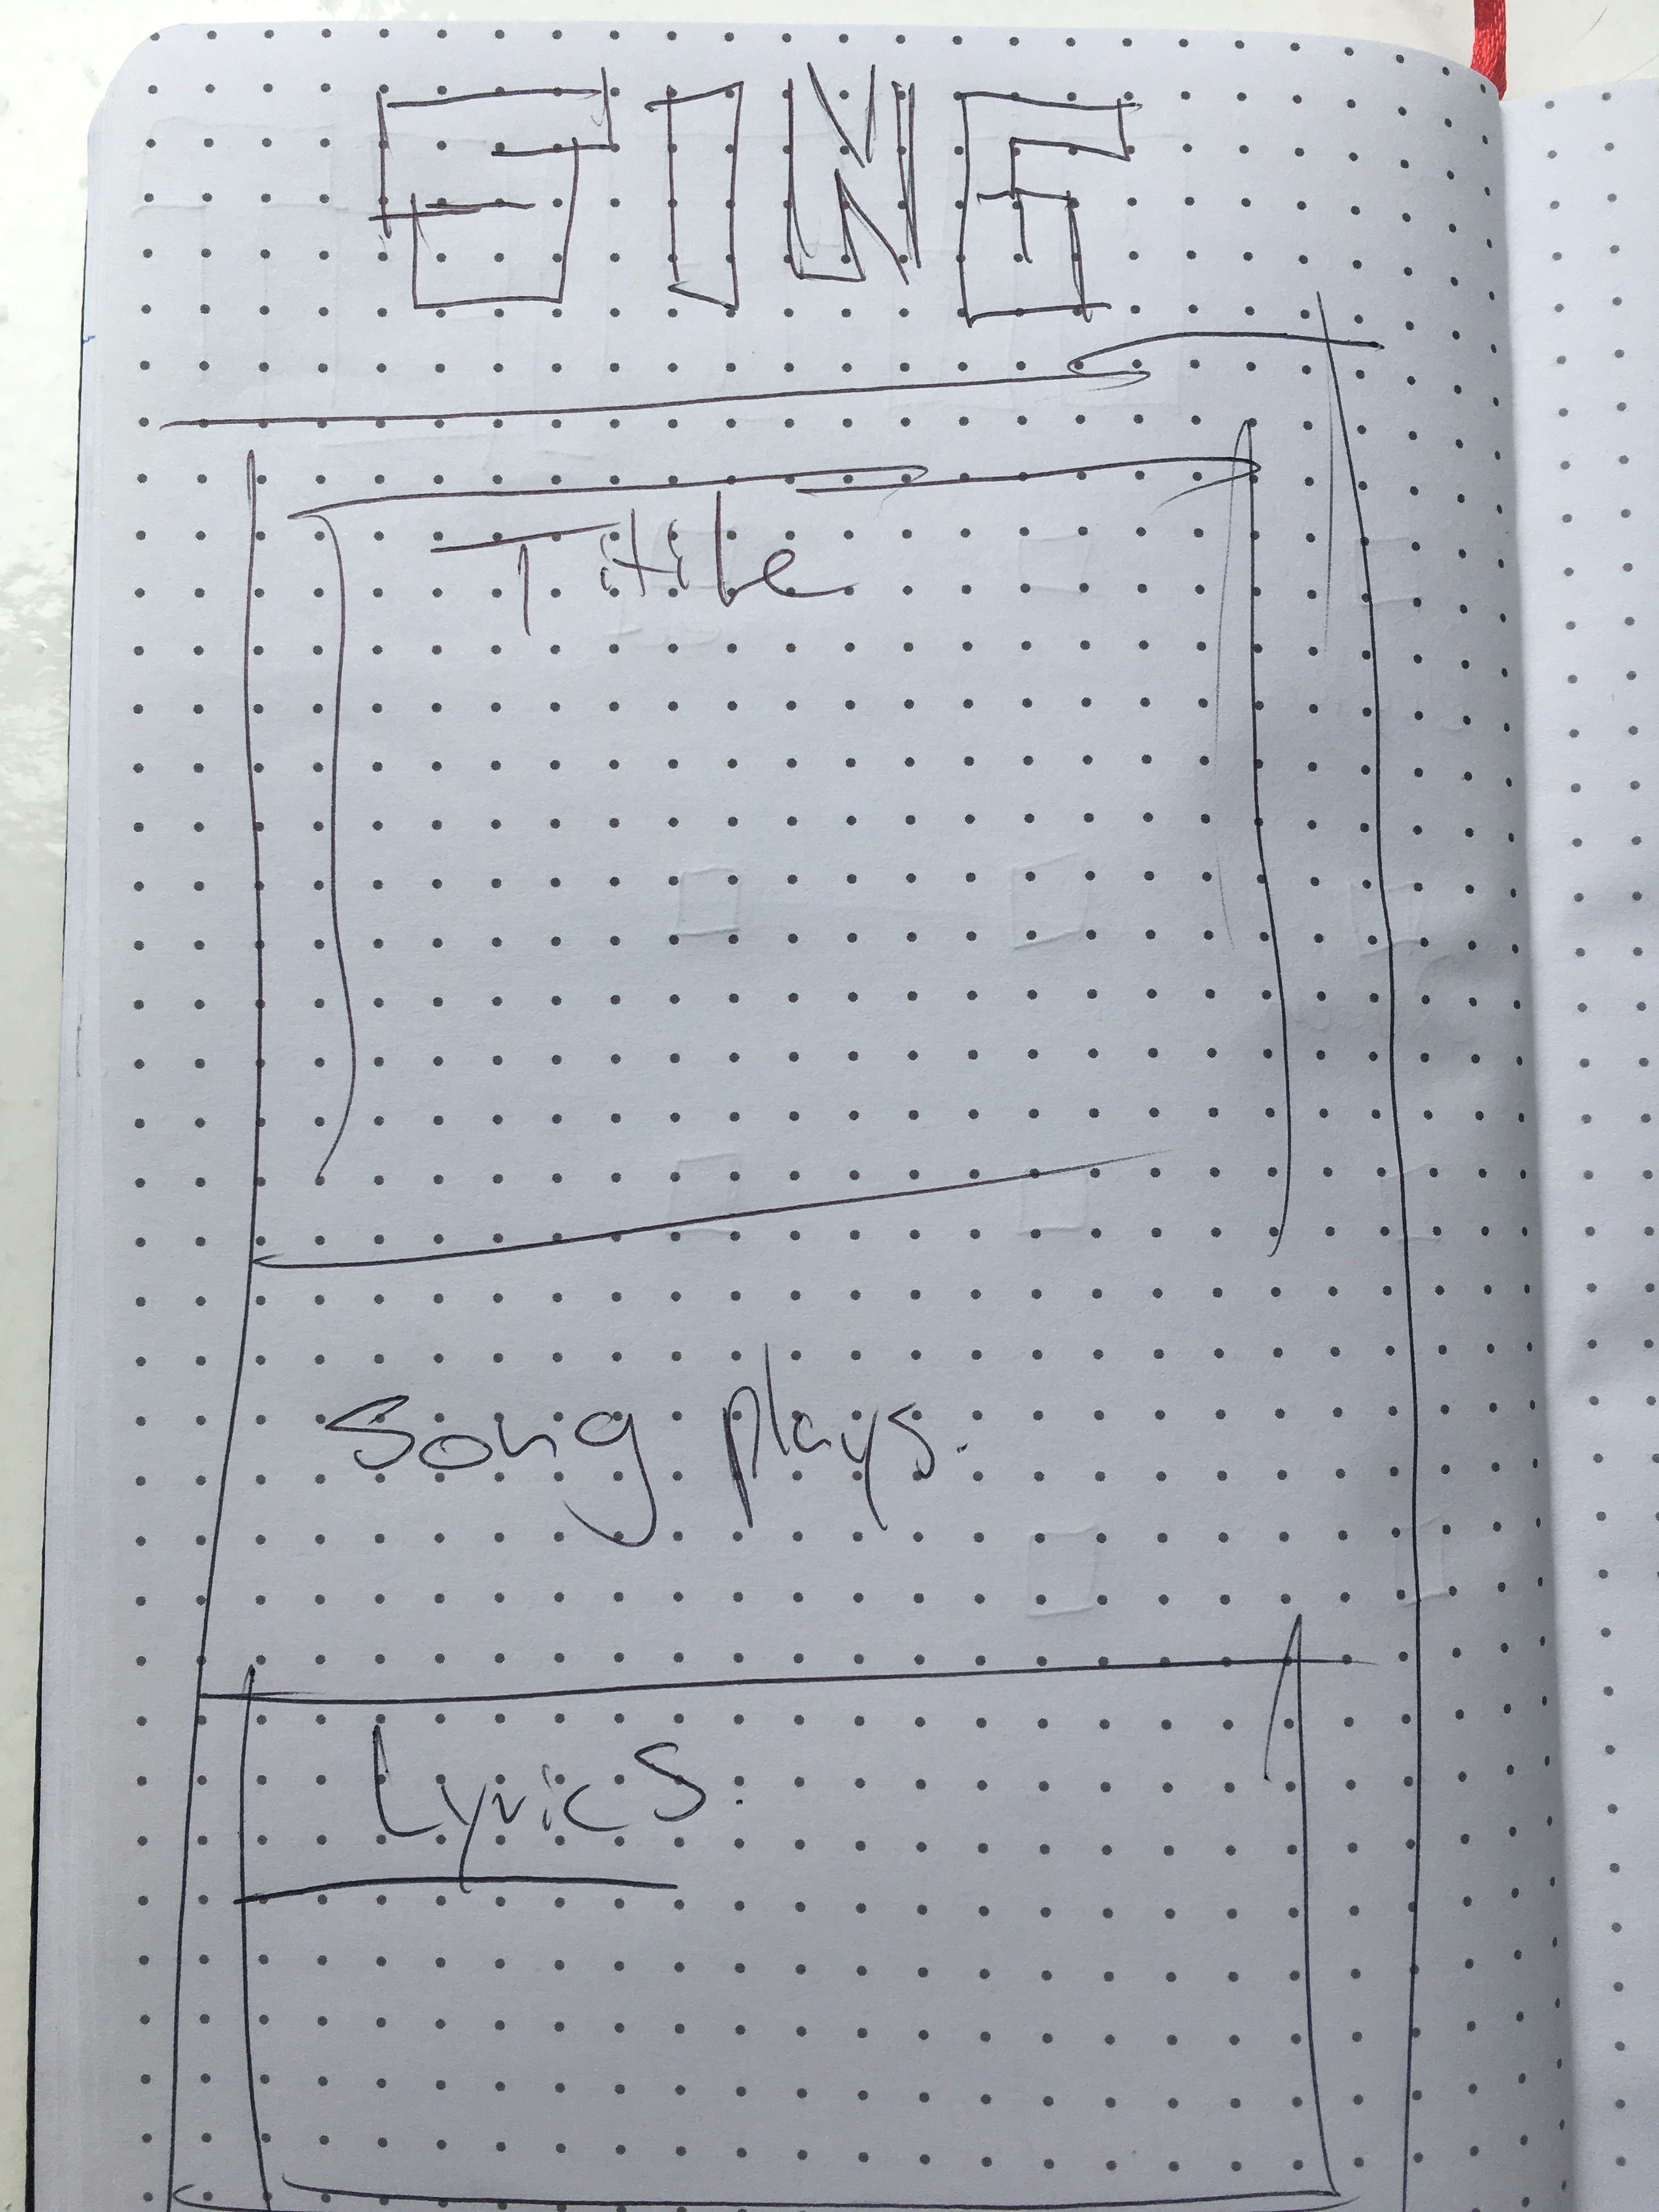 SING
Title
Song plays.
Lyrics.